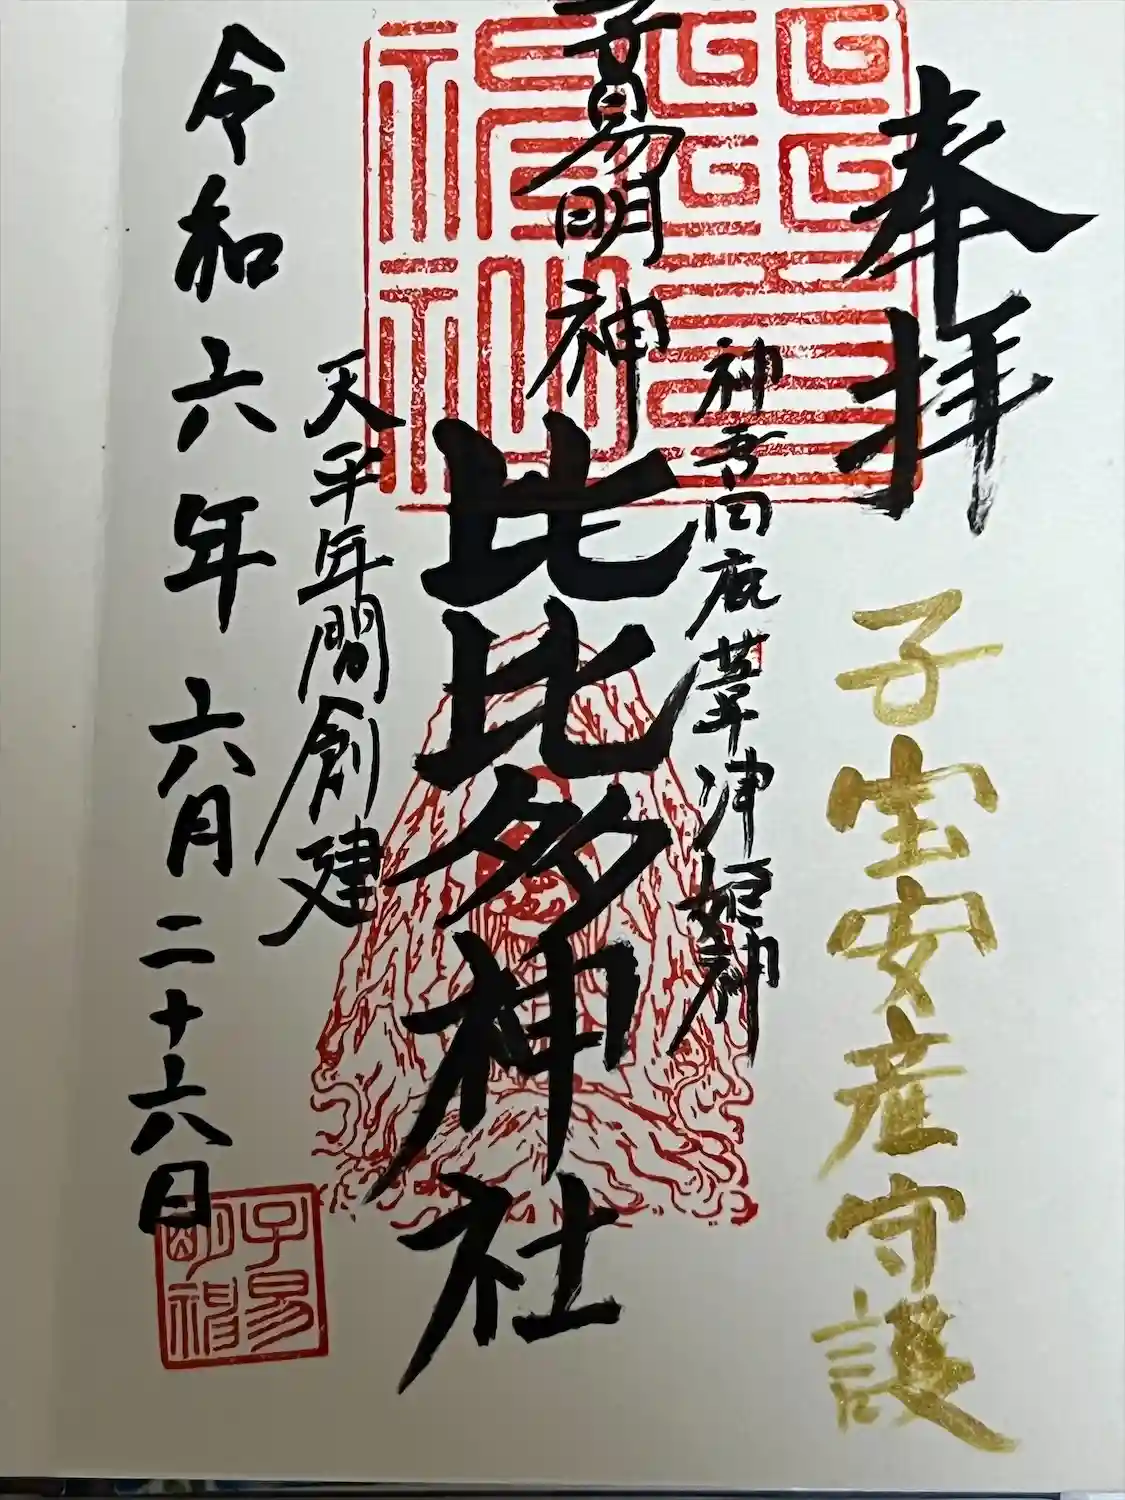 奉拝
子宝安産守護
神吾田鹿葦津姫神
子易明神
比比多神社
天平年間創建
令和六年六月二十六日
子易
明神